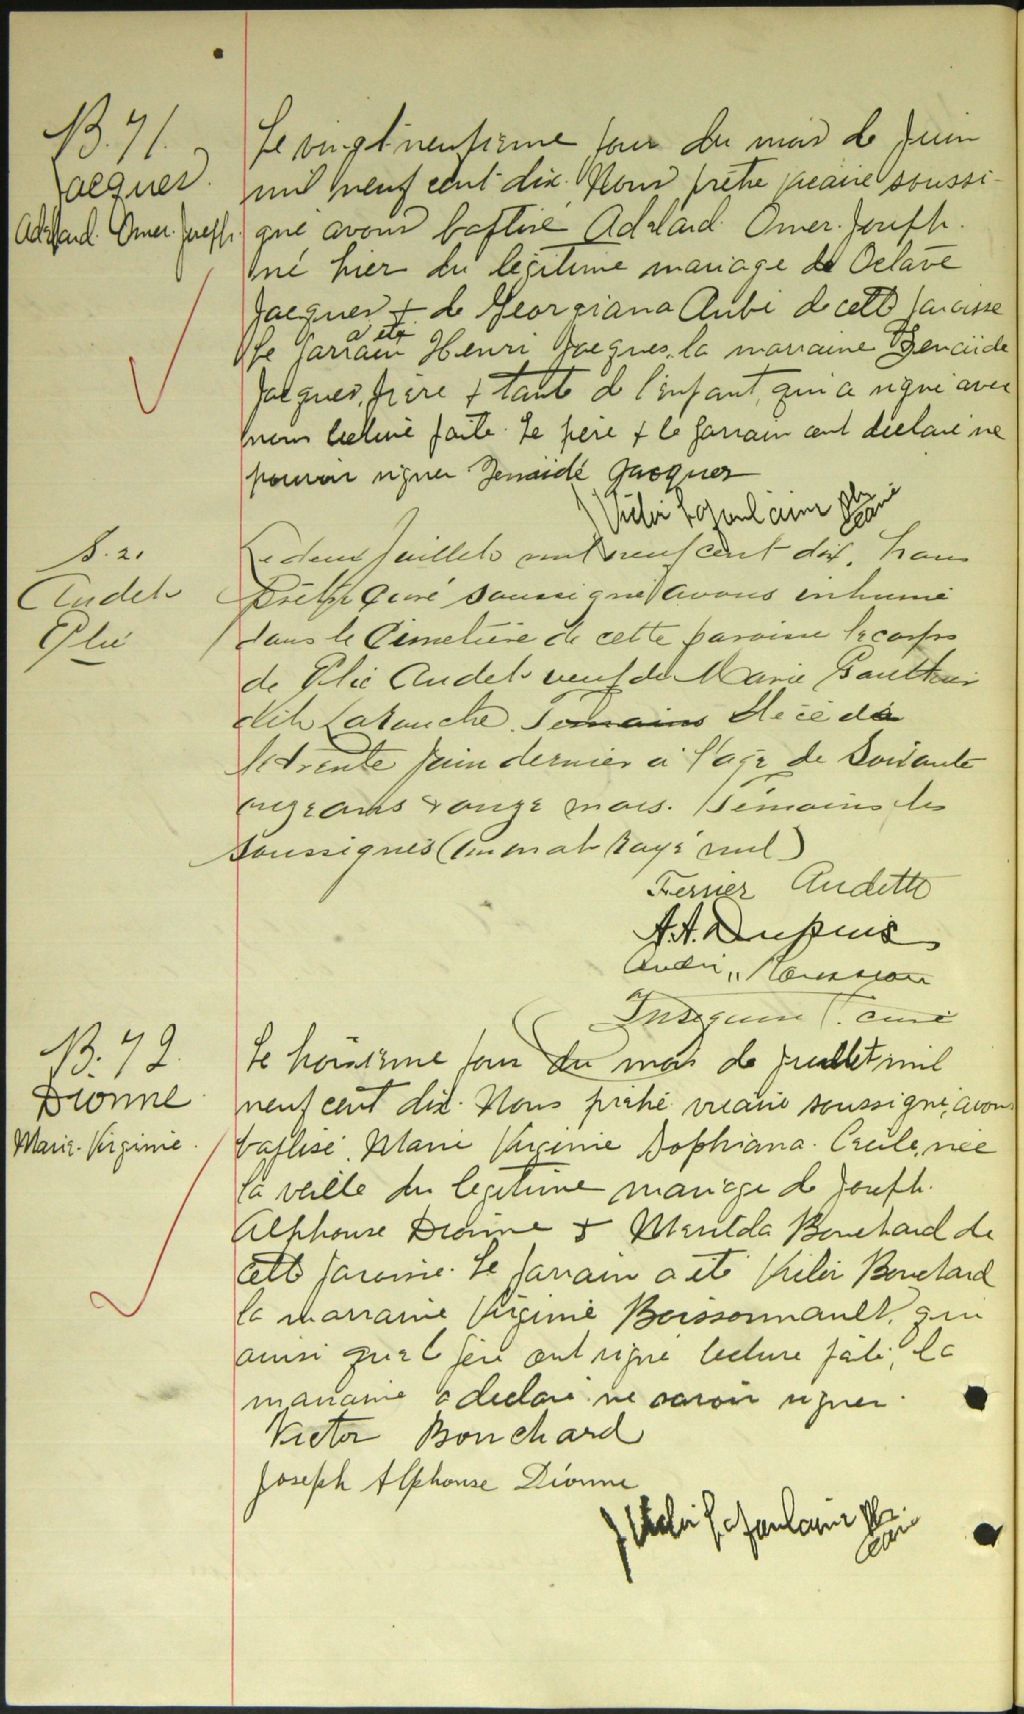 B. 71.
Jacques
Adélard. Omer. Joseph.
Le vingt-neufième jour du mois de Juin
mil neuf cent dix. Nous prêtre vicaire soussi-
gné avons baptisé Adélard. Omer. Joseph.
né hier du légitime mariage de Octave
Jacques + de Georgiana Aubé de cette paroisse
Le parrain a été Henri Jacques, la marraine Zénaïde
Jacques, frère + tante de l'enfant, qui a signé avec
nous lecture faite. Le père + le parrain ont déclaré ne
pouvoir signer Zénaïde Jacques
J Victor Lafontaine ptre
vicaire
S. 21
Audet
Elie
Le deux Juillet mil neuf cent dix, Nous
Prêtre Curé soussigné avons inhumé
dans le Cimetière de cette paroisse le corps
de Elie Audet veuf de Marie Gauthier
dit Larouche. Témoins décédé
le trente Juin dernier à l'âge de Soixante
ans & onze mois. Témoins les
soussignés (un mot rayé nul)
Ferrier Audette
A. A. Dupuis
André Rousseau
curé
B. 72
Dionne
Marie-Virginie.
Le troisième jour du mois de juillet mil
neuf cent dix. Nous prêtre vicaire soussigné, avons
baptisé Marie Virginie Sophiana. Cécile, née
la veille du légitime mariage de Joseph.
Alphonse Dionne + Matilda Bouchard de
cette paroisse. Le parrain a été Victor Bouchard
la marraine Virginie Boissonnault, qui
ainsi que le père ont signé lecture faite, la
marraine a déclaré ne savoir signer.
Victor Bouchard
Joseph Alphonse Dionne
J Victor Lafontaine ptre
vicaire